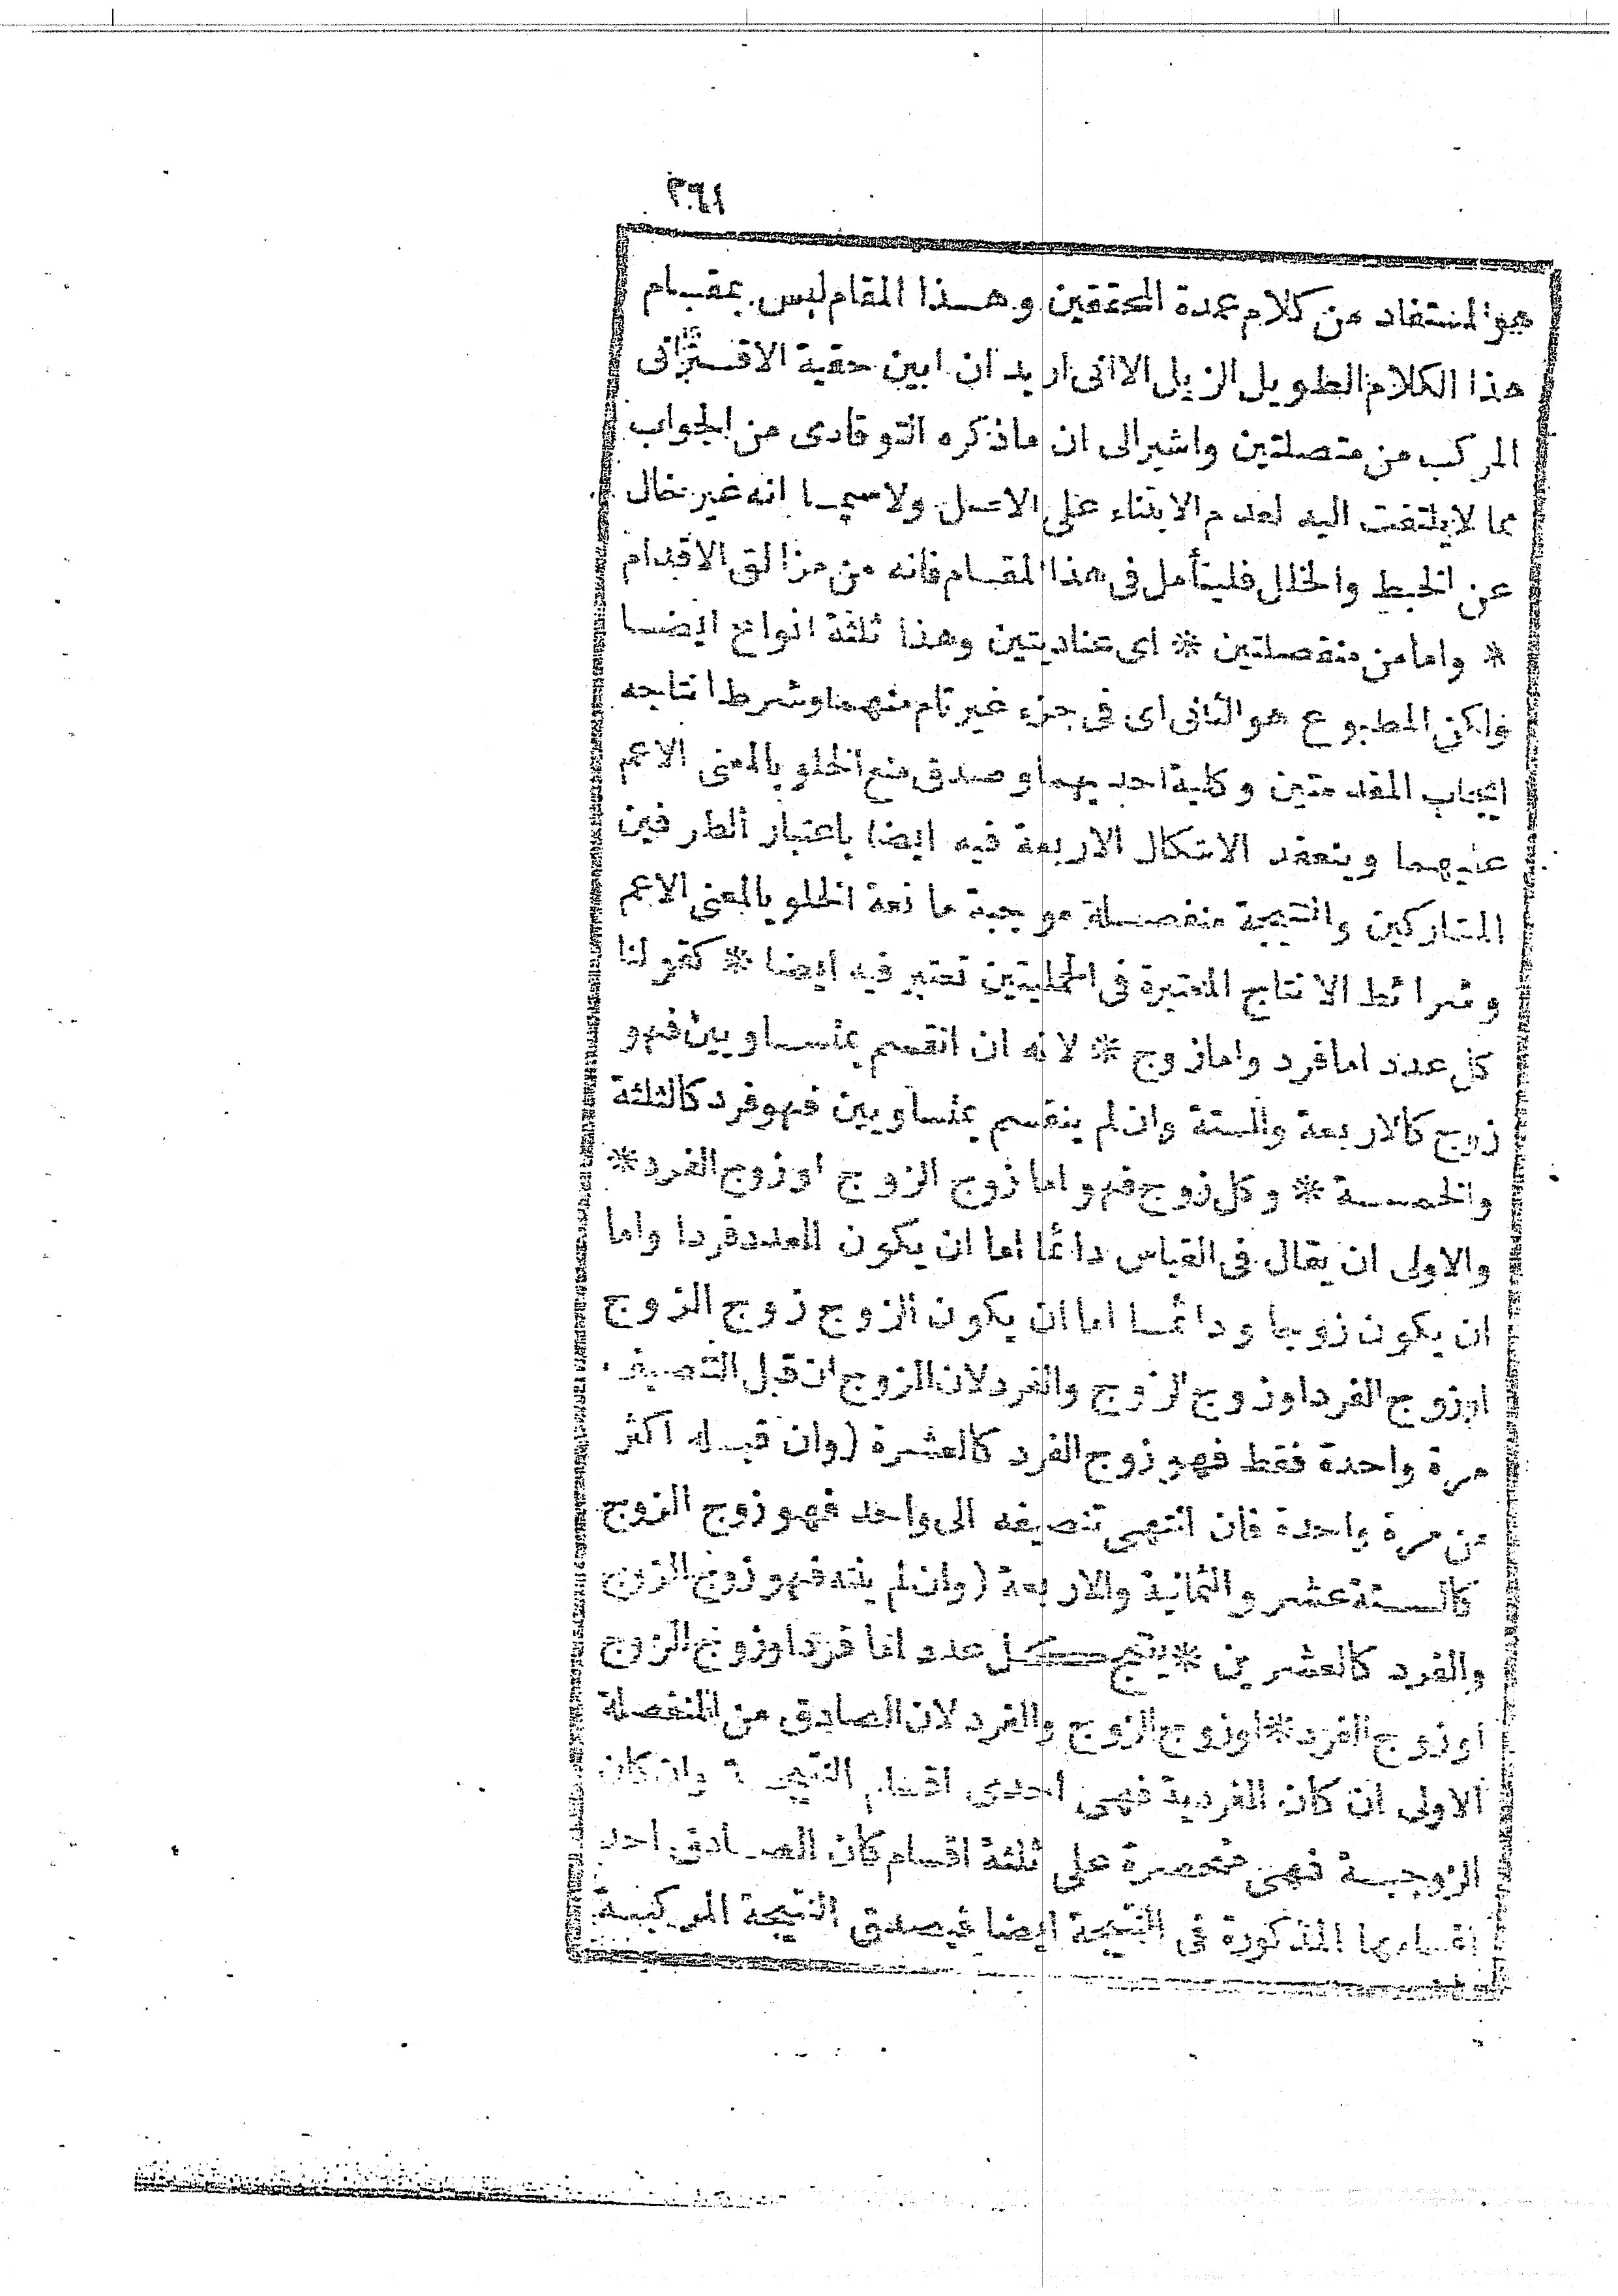 ٢٦١
هو المستفاد من كلام عمدة المحققين وهذا المقام ليس بمقام
هذا الكلام الطويل الزيل الا انى اريد ان ابين حقية الاقترانى
المركب من متصلتين واشير الى ان ماذكره التوقادى من الجواب
مما لا يلتفت اليه لعدم الابتناء على الاصل ولاسيما انه غير خال
عن الخبط والخلل فليتأمل فى هذا المقام فانه من مزالق الاقدام
* واما من منفصلتين * اى عناديتين وهذا ثلثة انواع ايضا
ولكن المطبوع هو الثانى اى فى جزء غير تام منهما وشرط انتاجه
ايجاب المقدمتين وكلية احديهما وصدق منع الخلو بالمعنى الاعم
عليهما وينعقد الاشكال الاربعة فيه ايضا باعتبار الطرفين
المتشاركين والنتيجة منفصلة موجبة مانعة الخلو بالمعنى الاعم
وشرائط الانتاج المعتبرة فى الحمليتين تعتبر فيه ايضا * كقولنا
كل عدد اما فرد واما زوج * لانه ان انقسم بمتساويين فهو
زوج كالاربعة والستة وان لم ينقسم بمتساويين فهو فرد كالثلثة
والخمسة * وكل زوج فهو اما زوج الزوج او زوج الفرد *
والاولى ان يقال فى القياس دائما اما ان يكون العدد فردا واما
ان يكون زوجا ودائما اما ان يكون الزوج زوج الزوج
او زوج الفرد او زوج الزوج والفرد لان الزوج ان قبل التنصيف
مرة واحدة فقط فهو زوج الفرد كالعشرة (وان قبله اكثر
من مرة واحدة فان انتهى تنصيفه الى واحد فهو زوج الزوج
كالستة عشر والثمانية والاربعة (وان لم ينته فهو زوج الزوج
والفرد كالعشرين * ينتج كل عدد اما فرد او زوج الزوج
او زوج الفرد * او زوج الزوج والفرد لان الصادق من المنفصلة
الاولى ان كان الفردية فهى احدى اقسام النتيجة وان كان
الزوجية فهى منحصرة على ثلثة اقسام كان الصادق احد
اقسامها المذكورة فى النتيجة ايضا فيصدق النتيجة المركبة